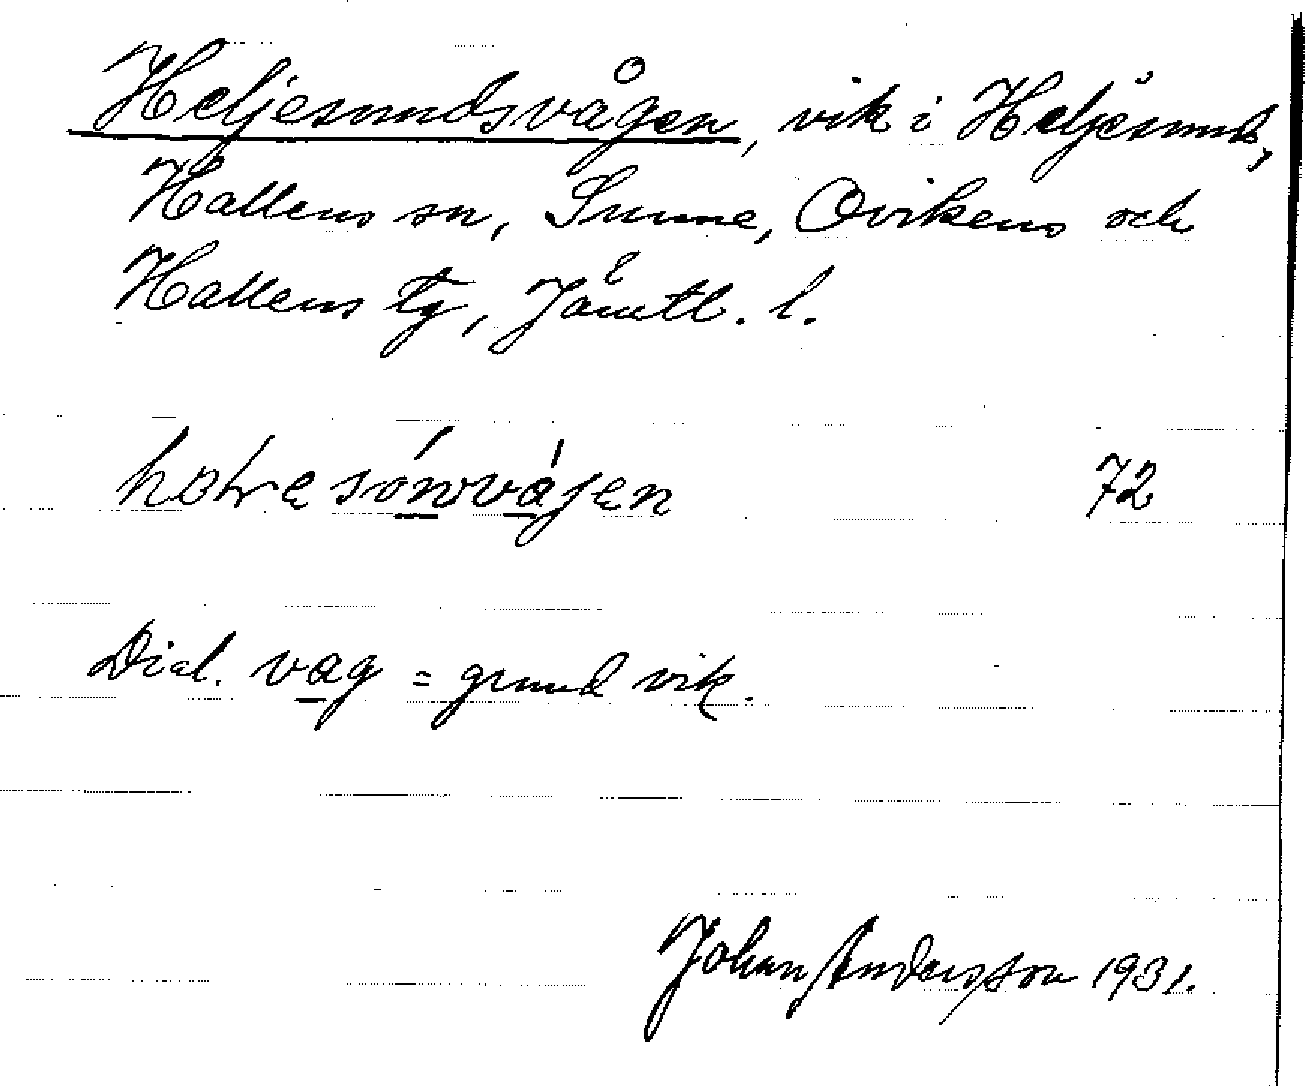 Heljesundsvågen, vik i Heljesund,
Hallens sn, Sunne, Ovikens och
Hallens tg, Jämtl. l.
72
Dial. våg = grund vik.
Johan Andersson 1931.